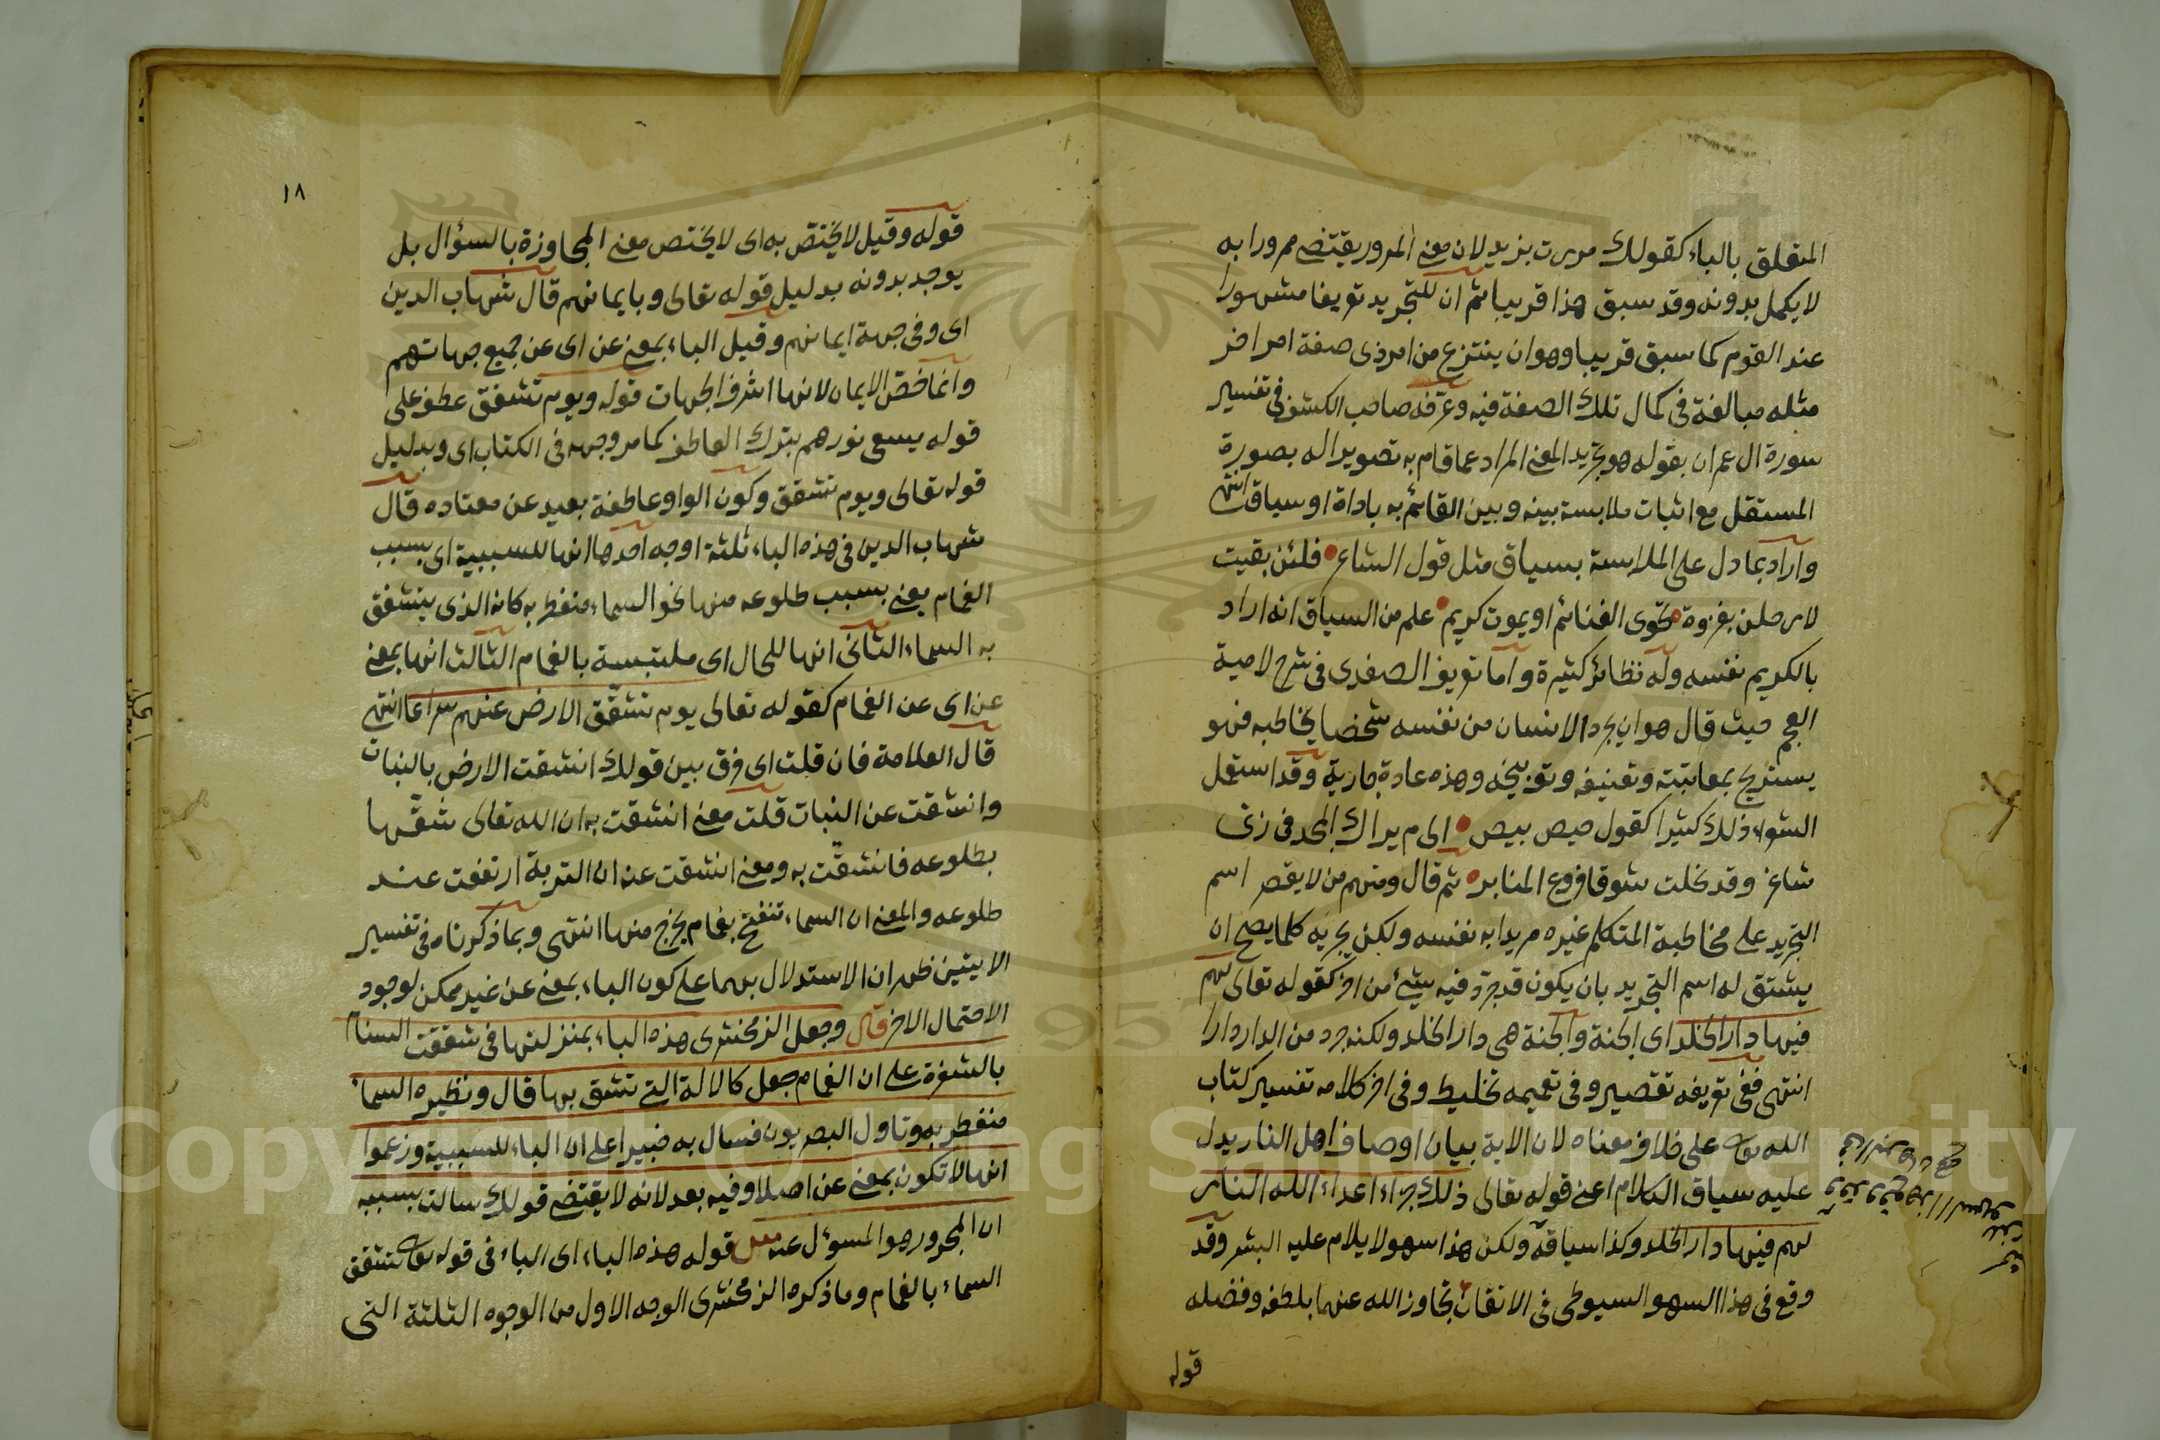 المتعلق بالباء كقولك مررت بزيد لان معنى المرور يقتضى مرورا به
لا يكمل بدونه وقد سبق هذا قريبا ثم ان للتجريد تعريفا مشهورا
عند القوم كما سبق قريبا وهو ان ينتزع من امر ذى صفة امر اخر
مثله مبالغة فى كمال تلك الصفة فيه وعرفه صاحب الكشف فى تفسير
سورة ال عمران بقوله هو تجريد المعنى المراد عما قام به تصويرا له بصورة
المستقل مع اثبات ملابسة بينه وبين القائم به باداة او سياق انتهى
واراد بما دل على الملابسة بسياق مثل قول الشاعر فلئن بقيت
لارحلن بغزوة تحوى الغنائم او يموت كريم علم من السياق انه اراد
بالكريم نفسه وله نظائر كثيرة واما تعريف الصفدى فى شرح لامية
العجم حيث قال هو ان يجرد الانسان من نفسه شخصا يخاطبه فهو
يستريح بمعاتبته وتعنيفه وتوبيخه وهذه عادة جارية وقد استعمل
الشعراء ذلك كثيرا كقول حيص بيص الى م يراك المجد فى زى
شاعر وقد نحلت شوقا فروع المنابر ثم قال ومنهم من لا يقصر اسم
التجريد على مخاطبة المتكلم غيره مريدا به نفسه ولكن يجريه كلما يصح ان
يشتق له اسم التجريد بان يكون قد جرد فيه شئ من اخر كقوله تعالى لهم
فيها دار الخلد اى الجنة والجنة هى دار الخلد ولكنه جرد من الدار دارا
انتهى ففى تعريفه تقصير وفى تعميمه تخليط وفى اخر كلامه تفسير كتاب
الله تعالى على خلاف معناه لان الاية بيان اوصاف اهل النار يدل
عليه سياق الكلام اعنى قوله تعالى ذلك جزاء اعداء الله النار
لهم فيها دار الخلد وكذا سياقه ولكن هذا سهو لا يلام عليه البشر وقد
وقع فى هذا السهو السيوطى فى الاتقان تجاوز الله عنهما بلطفه وفضله
قوله
١٨
قوله وقيل لا يختص به اى لا يختص معنى المجاوزة بالسؤال بل
يوجد بدونه بدليل قوله تعالى وبايمانهم قال شهاب الدين
اى وفى جهة ايمانهم وقيل الباء بمعنى عن اى عن جميع جهاتهم
وانما خص الايمان لانها اشرف الجهات قوله ويوم تشقق عطف على
قوله يسعى نورهم بترك العاطف كما مر وجهه فى الكتاب اى وبدليل
قوله تعالى ويوم تشقق وكون الواو عاطفة بعيد عن معتاده قال
شهاب الدين فى هذه الباء ثلثة اوجه احدها انها للسببية اى بسبب
الغمام يعنى بسبب طلوعه منها نحو السماء منفطر به كانه الذى ينشقق
به السماء الثانى انها للحال اى ملتبسة بالغمام الثالث انها بمعنى
عن اى عن الغمام كقوله تعالى يوم تشقق الارض عنهم سراعا انتهى
قال العلامة فان قلت اى فرق بين قولك انشقت الارض بالنبات
وانشقت عن النبات قلت معنى انشقت به ان الله تعالى شقها
بطلوعه فانشقت به ومعنى انشقت عنه ان التربة ارتفعت عند
طلوعه والمعنى ان السماء تنفتح بغمام يخرج منها انتهى وبما ذكرناه فى تفسير
الايتين ظهر ان الاستدلال بهما على كون الباء بمعنى عن غير ممكن لوجود
الاحتمال الاخر قال وجعل الزمخشرى هذه الباء بمنزلتها فى شققت السنام
بالشفرة على ان الغمام جعل كالالة التى تشق بها قال ونظيره السماء
منفطر به وتاول البصريون فسال به خبيرا على ان الباء للسببية وزعموا
انها لا تكون بمعنى عن اصلا وفيه بعد لانه لا يقتضى قولك سالت بسببه
ان المجرور هو المسؤل عنه قوله هذه الباء اى الباء فى قوله تعالى تشقق
السماء بالغمام وما ذكره الزمخشرى الوجه الاول من الوجوه الثلثة التى
Copyright © King Saud University